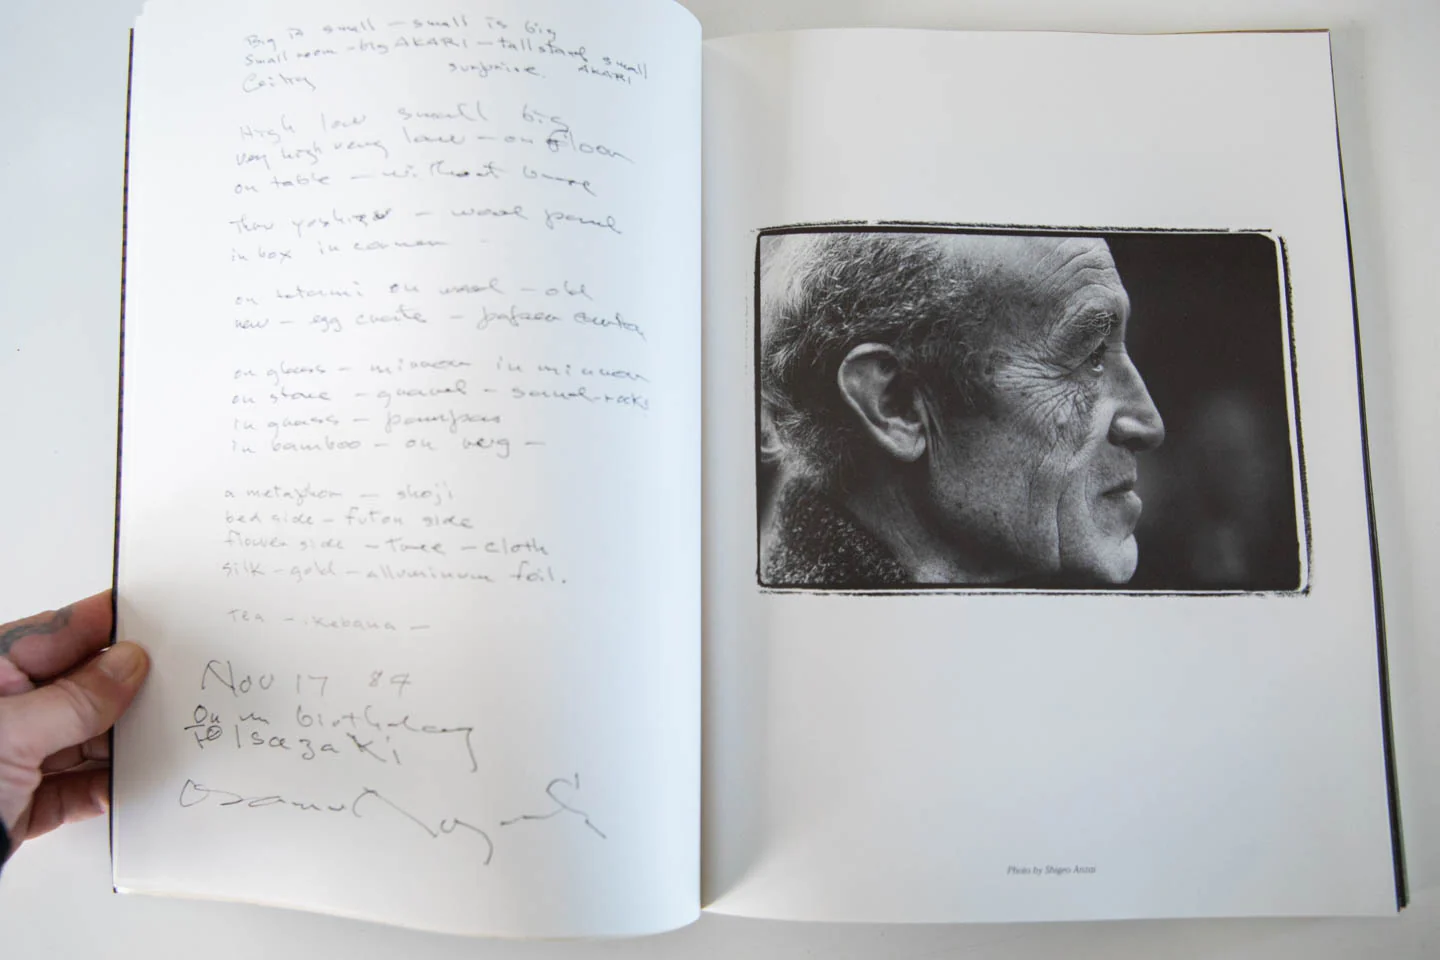 Big is small – small is big
Small room – big AKARI – tall stand small
Ceiling surprise. AKARI
High low small big
very high very low – on floor
on table – without base
wood panel
in box in corner
on tatami on wood – old
new – egg crate – paper
on glass – mirror in mirror
on stone – gravel – small rocks
in grass – pampas
in bamboo – on
a metaphor – shoji
bed side – futon side
flower side – tree – cloth
silk – gold – alluminum foil.
Tea – ikebana –
Nov 17 84
On m birthday
to Isozaki
Isamu Noguchi
Photo by Shigeo Anzai